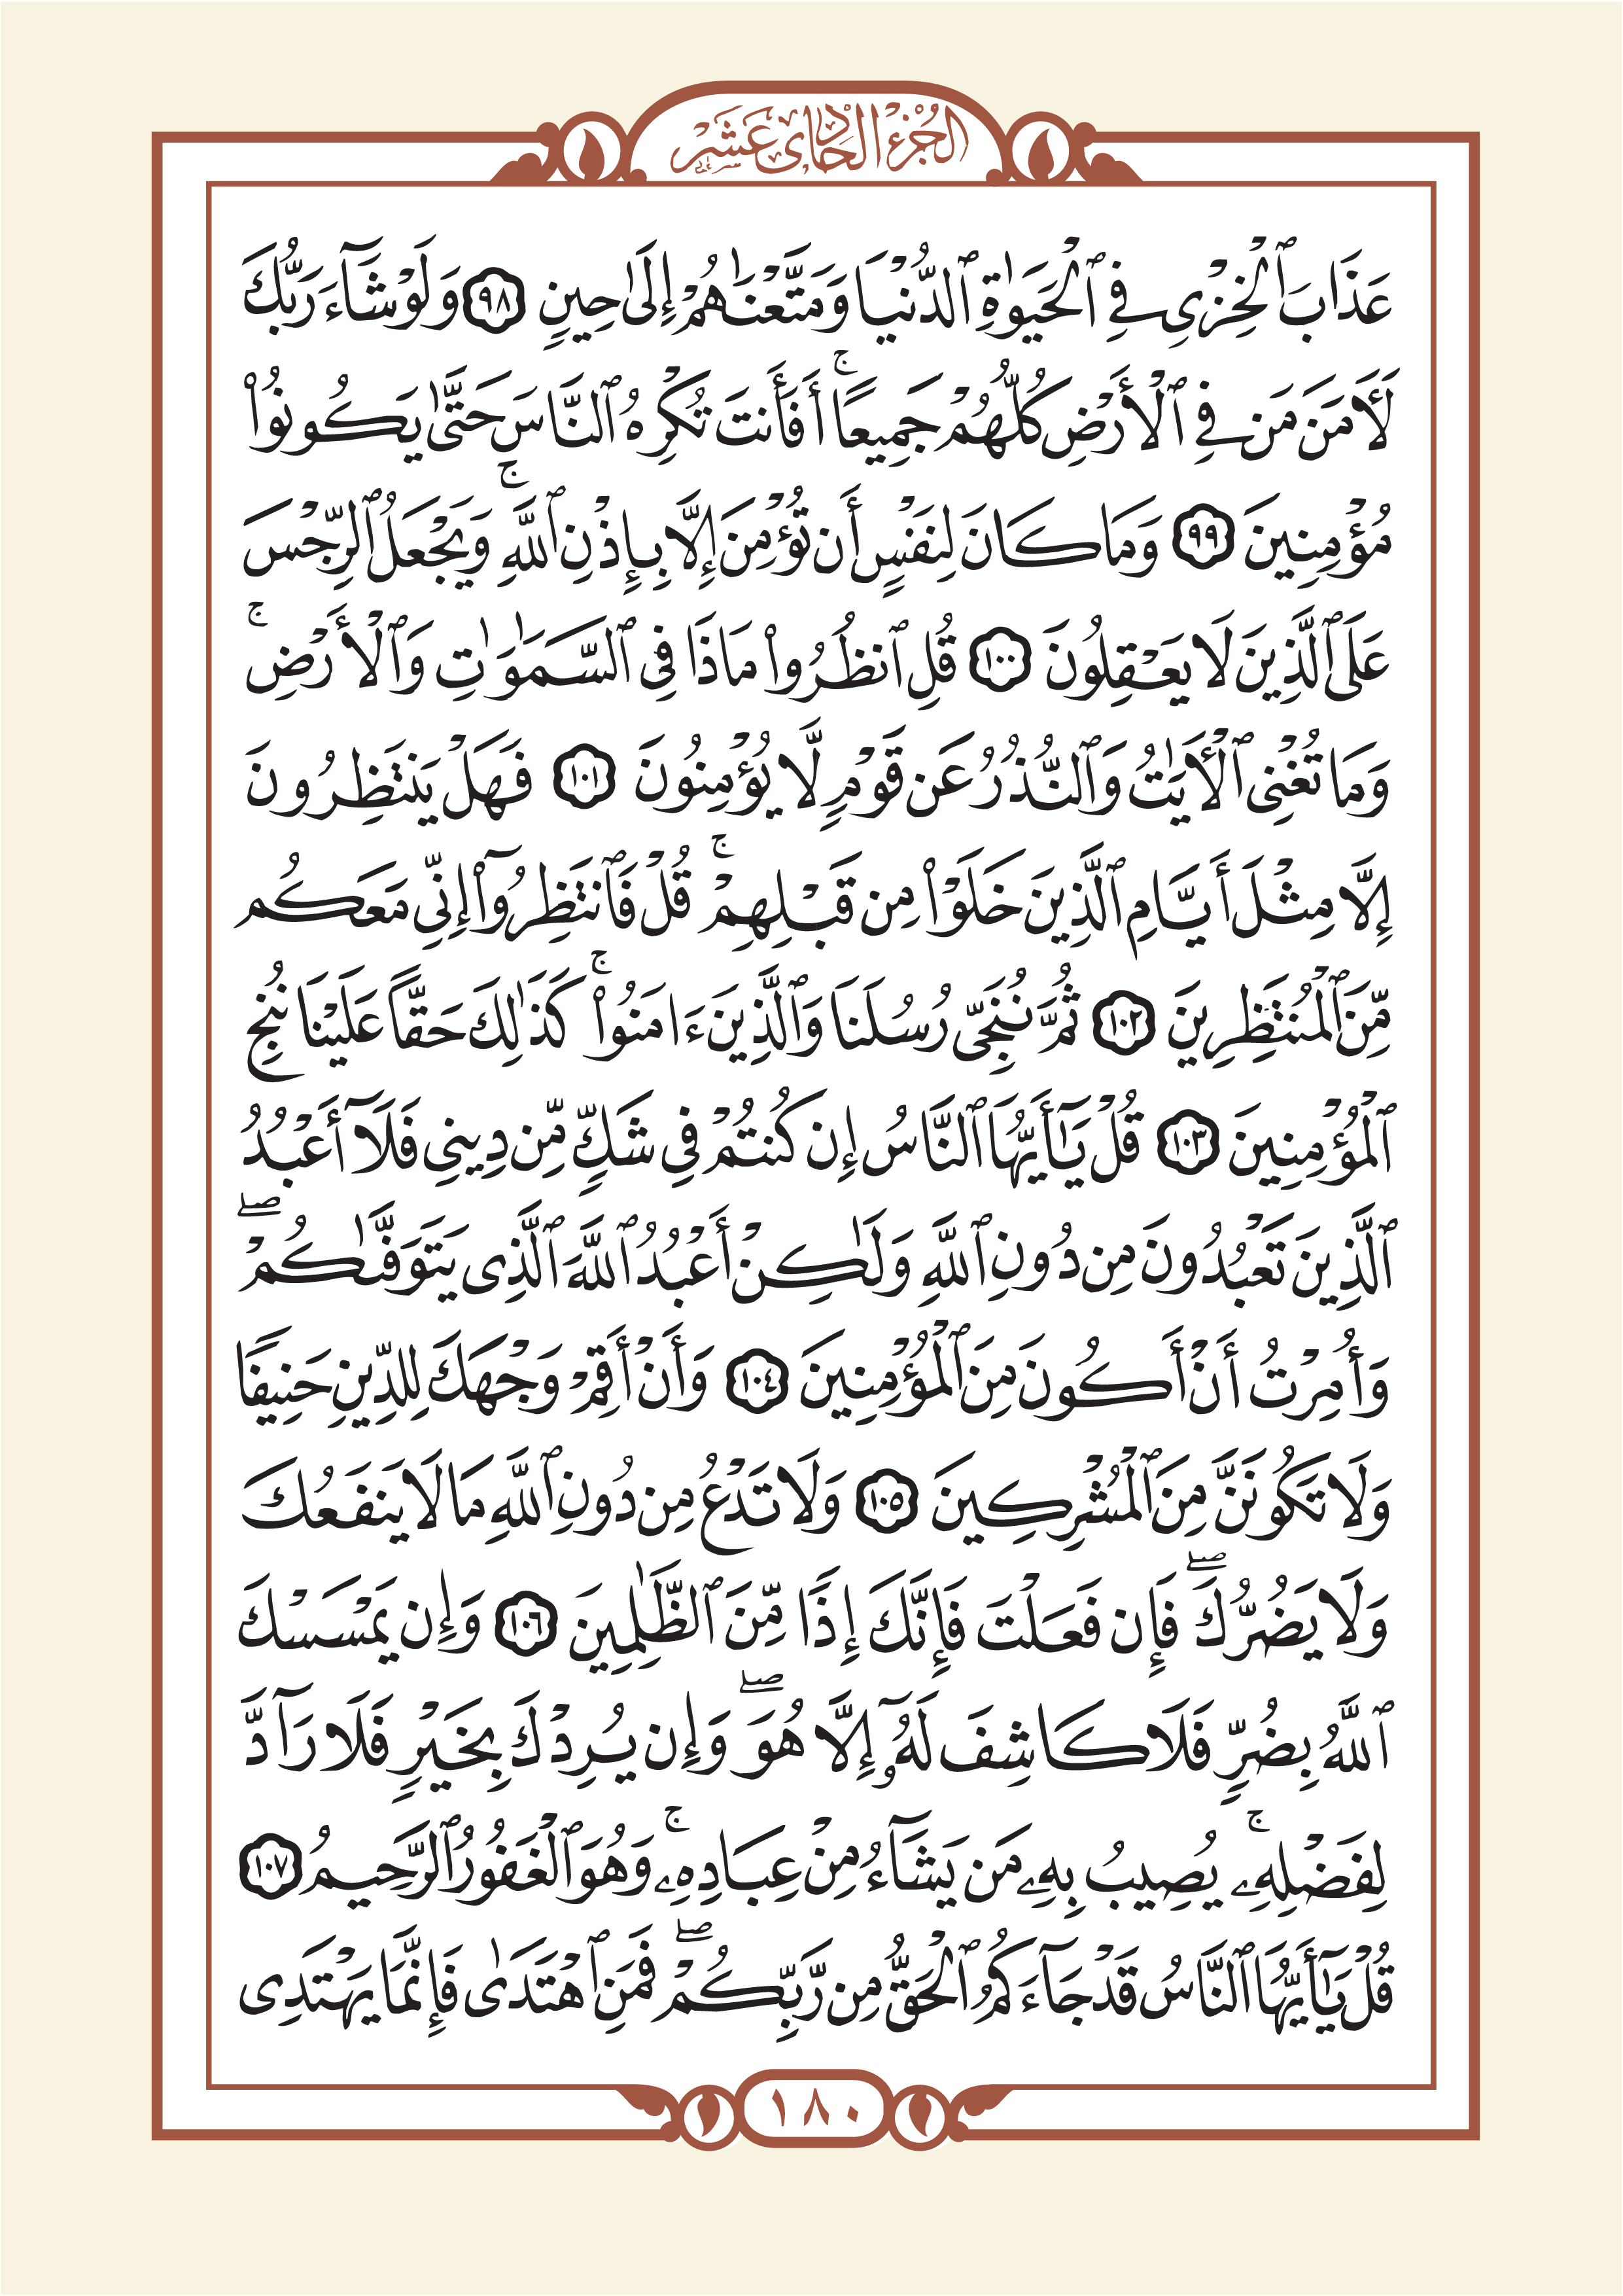 الجزء الحادى عشر
عَذَابَ ٱلْخِزْىِ فِى ٱلْحَيَوٰةِ ٱلدُّنْيَا وَمَتَّعْنَٰهُمْ إِلَىٰ حِينٍ ٩٨ وَلَوْ شَآءَ رَبُّكَ
لَأَمَنَ مَن فِى ٱلْأَرْضِ كُلُّهُمْ جَمِيعًا ۚ أَفَأَنتَ تُكْرِهُ ٱلنَّاسَ حَتَّىٰ يَكُونُوا۟
مُؤْمِنِينَ ٩٩ وَمَا كَانَ لِنَفْسٍ أَن تُؤْمِنَ إِلَّا بِإِذْنِ ٱللَّهِ ۚ وَيَجْعَلُ ٱلرِّجْسَ
عَلَى ٱلَّذِينَ لَا يَعْقِلُونَ ١٠٠ قُلِ ٱنظُرُوا۟ مَاذَا فِى ٱلسَّمَٰوَٰتِ وَٱلْأَرْضِ ۚ
وَمَا تُغْنِى ٱلْأَيَٰتُ وَٱلنُّذُرُ عَن قَوْمٍ لَّا يُؤْمِنُونَ ١٠١ فَهَلْ يَنتَظِرُونَ
إِلَّا مِثْلَ أَيَّامِ ٱلَّذِينَ خَلَوْا۟ مِن قَبْلِهِمْ ۚ قُلْ فَٱنتَظِرُوٓا۟ إِنِّى مَعَكُم
مِّنَ ٱلْمُنتَظِرِينَ ١٠٢ ثُمَّ نُنَجِّى رُسُلَنَا وَٱلَّذِينَ ءَامَنُوا۟ ۚ كَذَٰلِكَ حَقًّا عَلَيْنَا نُنجِ
ٱلْمُؤْمِنِينَ ١٠٣ قُلْ يَٰٓأَيُّهَا ٱلنَّاسُ إِن كُنتُمْ فِى شَكٍّ مِّن دِينِى فَلَآ أَعْبُدُ
ٱلَّذِينَ تَعْبُدُونَ مِن دُونِ ٱللَّهِ وَلَٰكِنْ أَعْبُدُ ٱللَّهَ ٱلَّذِى يَتَوَفَّىٰكُمْ ۖ
وَأُمِرْتُ أَنْ أَكُونَ مِنَ ٱلْمُؤْمِنِينَ ١٠٤ وَأَنْ أَقِمْ وَجْهَكَ لِلدِّينِ حَنِيفًا
وَلَا تَكُونَنَّ مِنَ ٱلْمُشْرِكِينَ ١٠٥ وَلَا تَدْعُ مِن دُونِ ٱللَّهِ مَا لَا يَنفَعُكَ
وَلَا يَضُرُّكَ ۖ فَإِن فَعَلْتَ فَإِنَّكَ إِذًا مِّنَ ٱلظَّٰلِمِينَ ١٠٦ وَإِن يَمْسَسْكَ
ٱللَّهُ بِضُرٍّ فَلَا كَاشِفَ لَهُۥٓ إِلَّا هُوَ ۖ وَإِن يُرِدْكَ بِخَيْرٍ فَلَا رَآدَّ
لِفَضْلِهِۦ ۚ يُصِيبُ بِهِۦ مَن يَشَآءُ مِنْ عِبَادِهِۦ ۚ وَهُوَ ٱلْغَفُورُ ٱلرَّحِيمُ ١٠٧
قُلْ يَٰٓأَيُّهَا ٱلنَّاسُ قَدْ جَآءَكُمُ ٱلْحَقُّ مِن رَّبِّكُمْ ۖ فَمَنِ ٱهْتَدَىٰ فَإِنَّمَا يَهْتَدِى
١٨٠